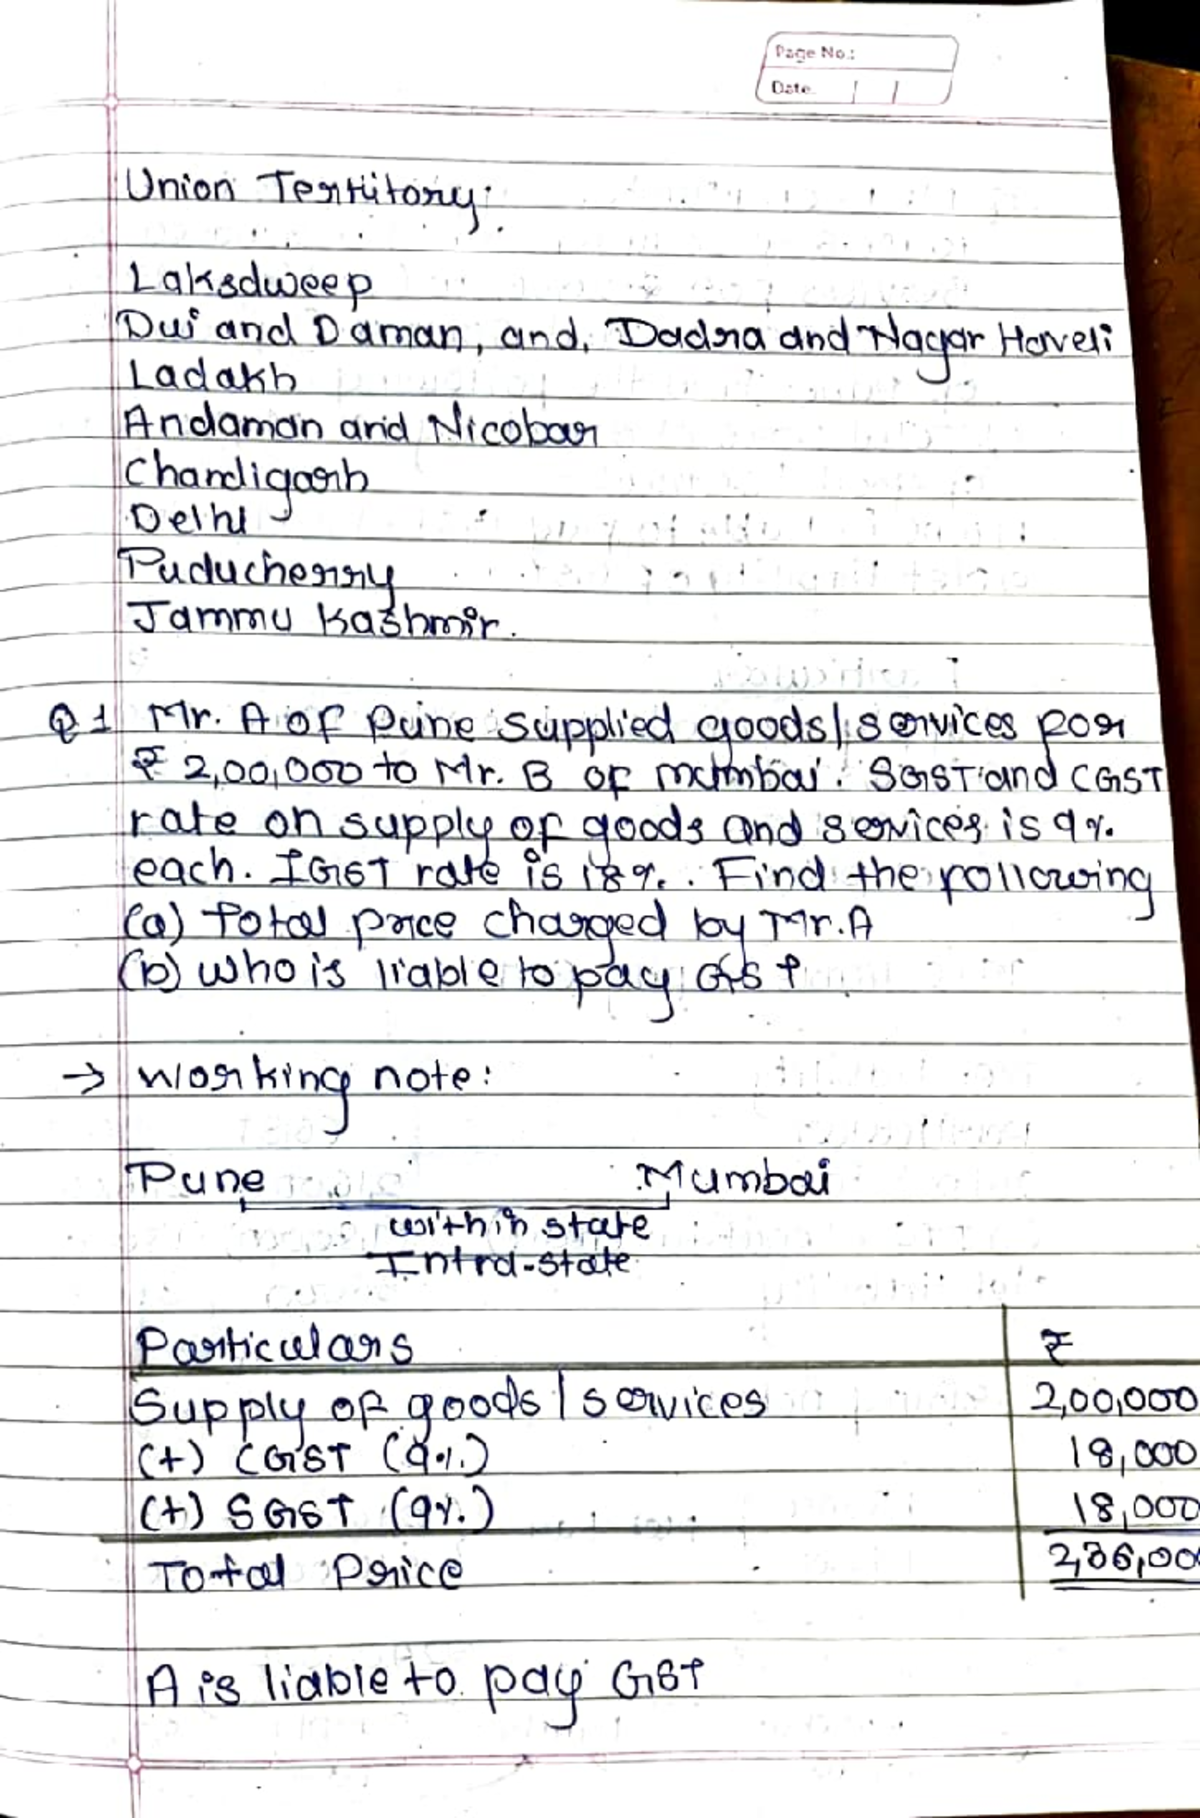 Page No.:
Date
Union Territory:
Laksdweep
Dui and Daman, and, Dadra and Nagar Haveli
Ladakh
Andaman and Nicobar
Chandigarh
Delhi
Puducherry
Jammu Kashmir.
Q1 Mr. A of Pune supplied goods/services for
₹ 2,00,000 to Mr. B of mumbai. SGST and CGST
rate on supply of goods and services is 9%
each. IGST rate is 18%. Find the following
(a) Total price charged by Mr. A
(b) Who is liable to pay GST
→ Working note:
Pune Mumbai
within state
Intra-state
Particulars ₹
Supply of goods/services 2,00,000
(+) CGST (9%) 18,000
(+) SGST (9%) 18,000
Total Price 2,36,00
A is liable to pay GST